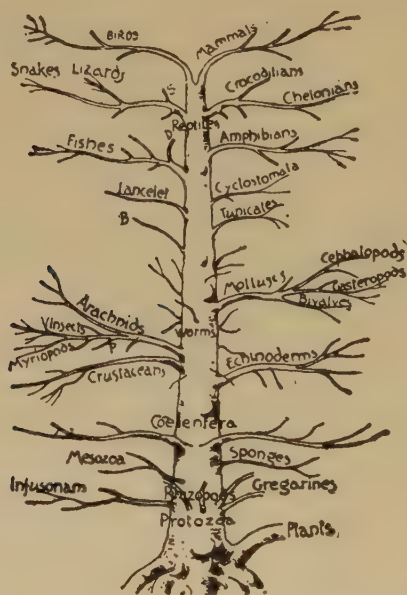 Birds
Mammals
Snakes Lizards
S
Crocodilians
Chelonians
Reptiles
D
Fishes
Amphibians
Lancelet
Cyclostomata
B
Tunicates
Cephalopods
Molluscs
Gasteropods
Bivalves
Arachnids
Worms
Vinsects
Myriopods
P
Echinoderms
Crustaceans
Coelentera
Mesozoa
Sponges
Infusorians
Rhizopods
Gregarines
Protozoa
Plants